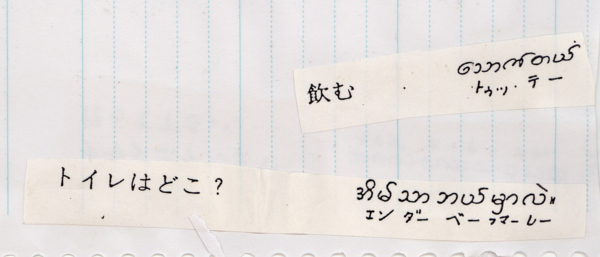 飲む သောက်တယ်
トゥッ・テー
トイレはどこ? အိမ်သာဘယ်မှာလဲ။
エンダー ベーフマーレー